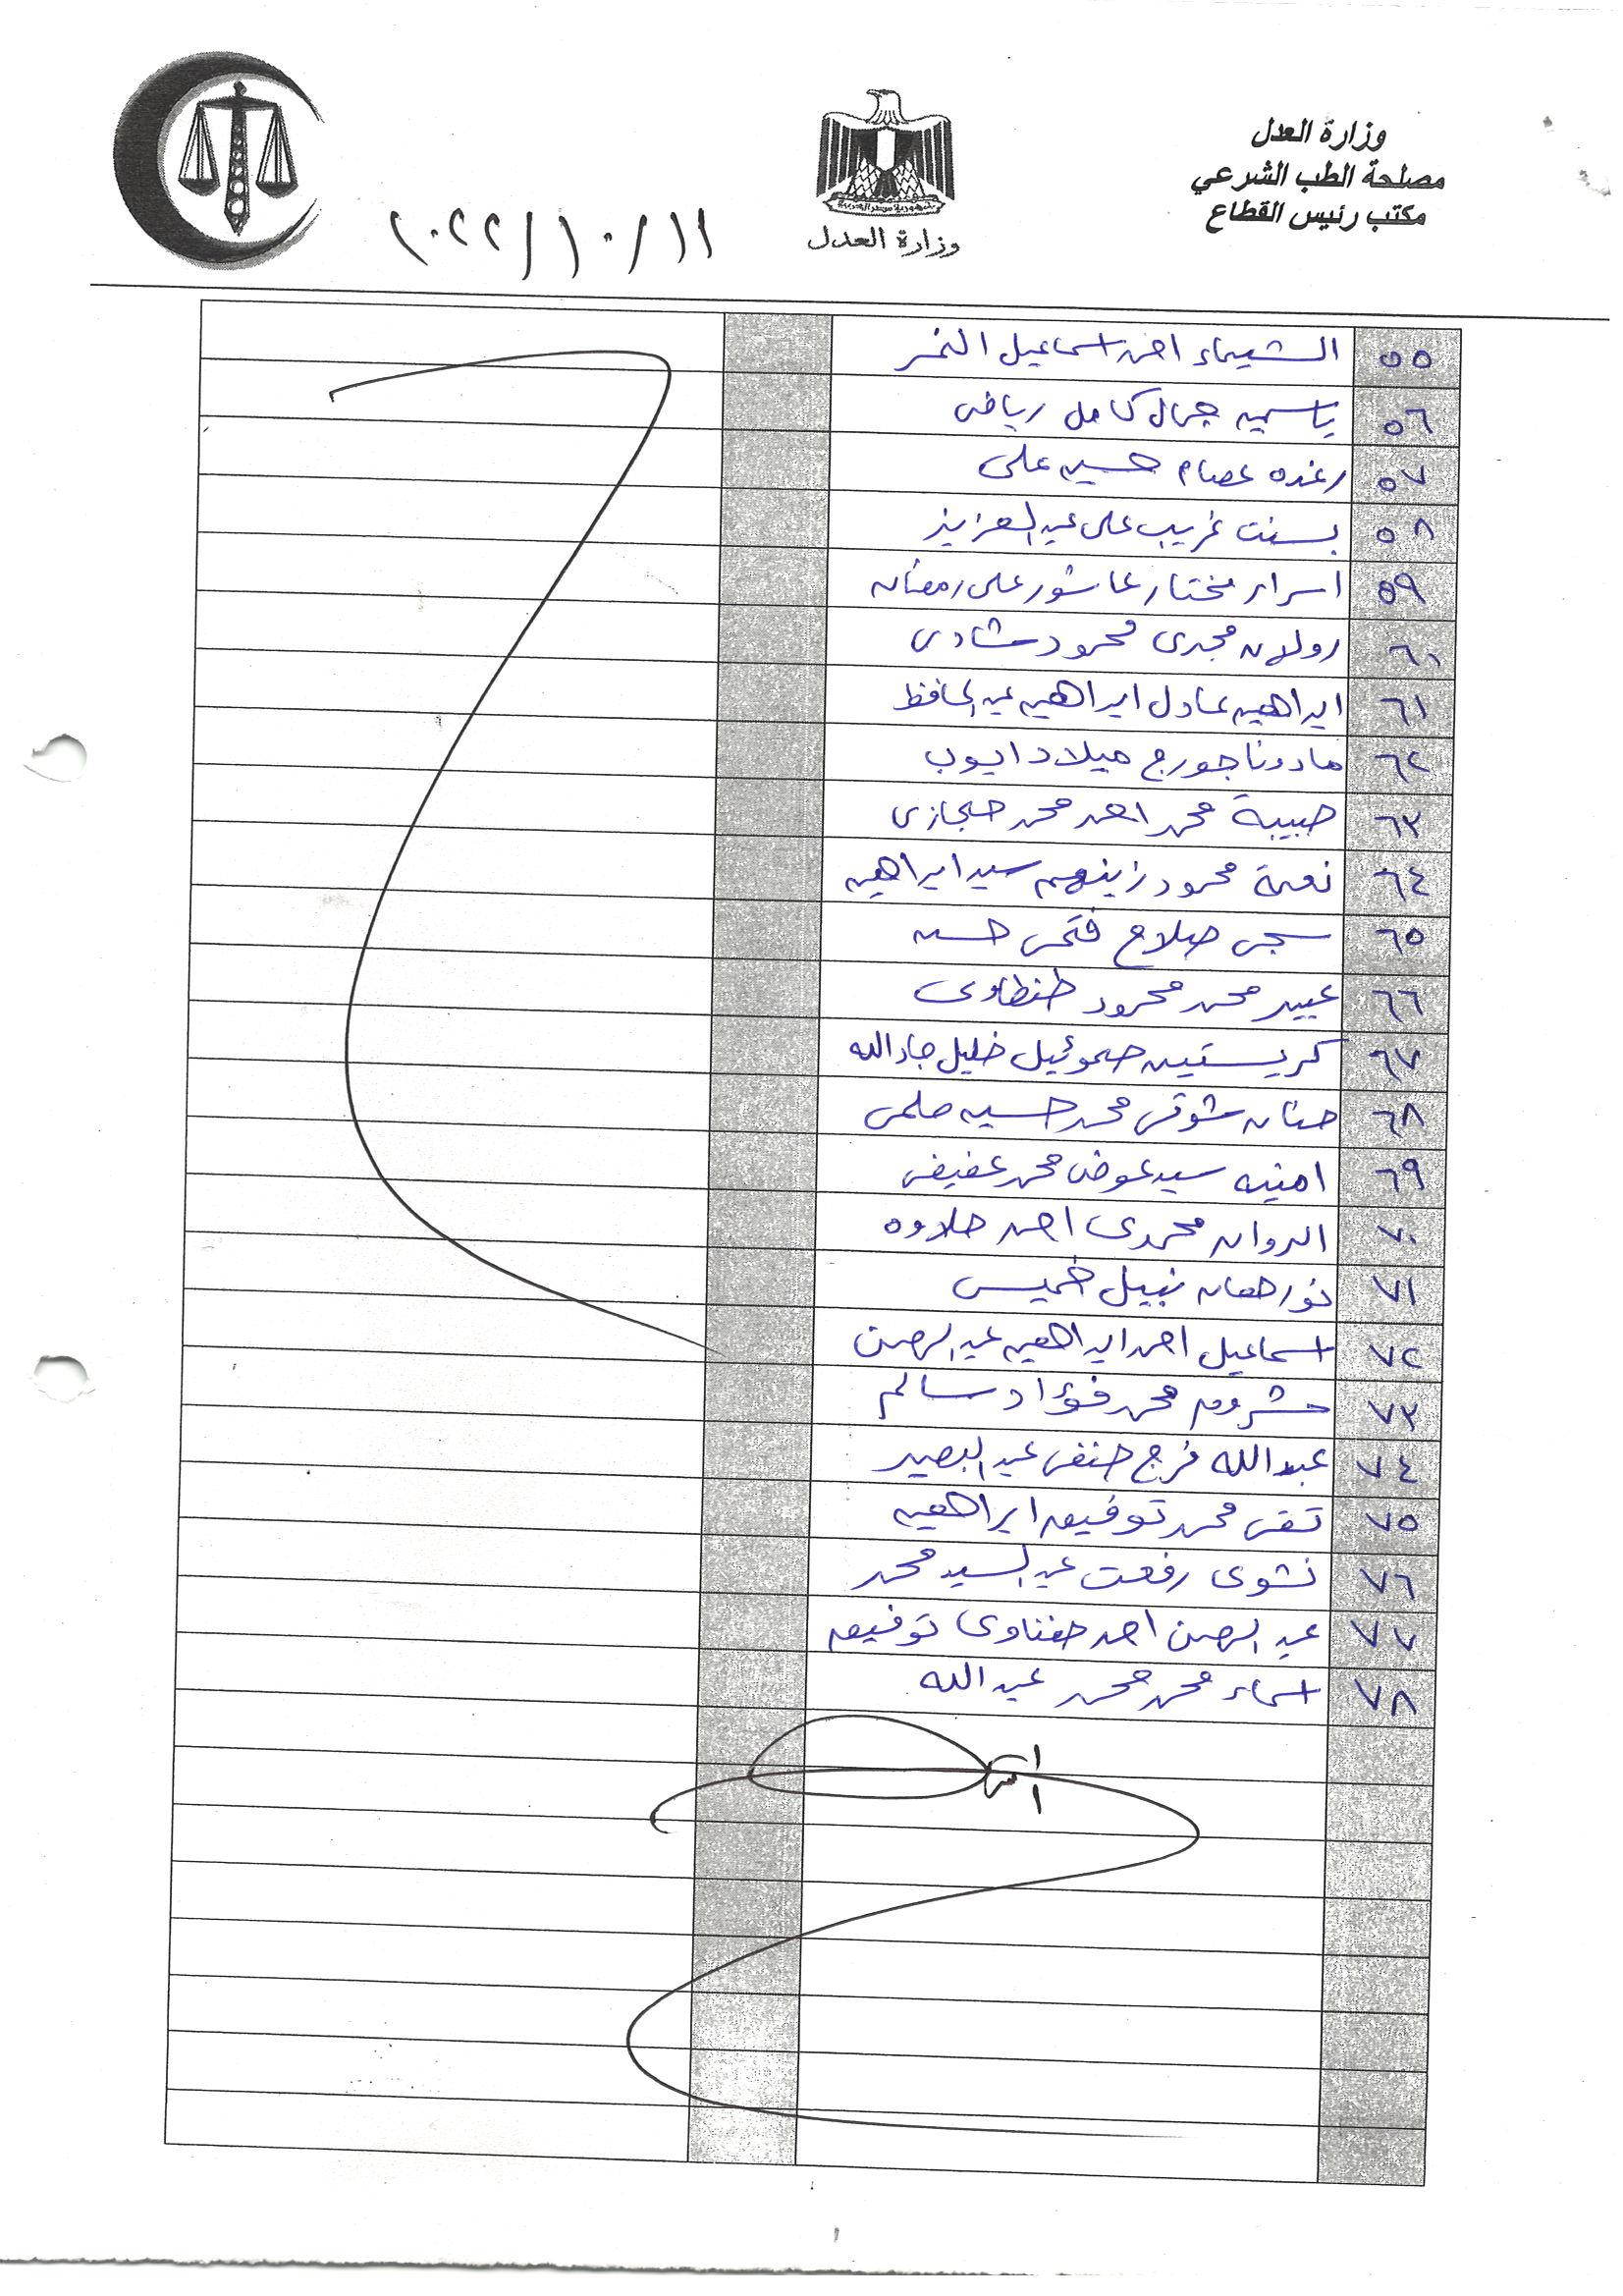 وزارة العدل
مصلحة الطب الشرعي
مكتب رئيس القطاع
وزارة العدل
٢٠٢٢/١٠/١١
٥٥ الشيماء احمد اسماعيل النمر
٥٦ ياسمين جمال كامل رياض
٥٧ رغده عصام حسين على
٥٨ بسنت غريب على عبد العزيز
٥٩ اسراء مختار عاشور على رمضان
٦٠ روان مجدى محمود شادى
٦١ ابراهيم عادل ابراهيم عبد الحافظ
٦٢ مادونا جورج ميلاد ايوب
٦٣ حبيبة محمد احمد محمد حجازى
٦٤ نعمة محمود زينهم سيد ابراهيم
٦٥ سجى صلاح فتحى حسن
٦٦ عبير محمد محمود طنطاوى
٦٧ كريستين صموئيل خليل جاد الله
٦٨ حنان شوقى محمد حسين حلمى
٦٩ امنيه سيد عوض محمد عفيفى
٧٠ الروان محمدى احمد حلاوه
٧١ نورهان نبيل خميس
٧٢ اسماعيل احمد ابراهيم عبد الرحمن
٧٣ محمد فؤاد سالم
٧٤ عبدالله فرج حنفى عبد البصير
٧٥ تقى محمد توفيق ابراهيم
٧٦ نشوى رفعت عبد السيد محمد
٧٧ عبد الرحمن احمد حفناوى توفيق
٧٨ اسماء محمد محمد عبدالله